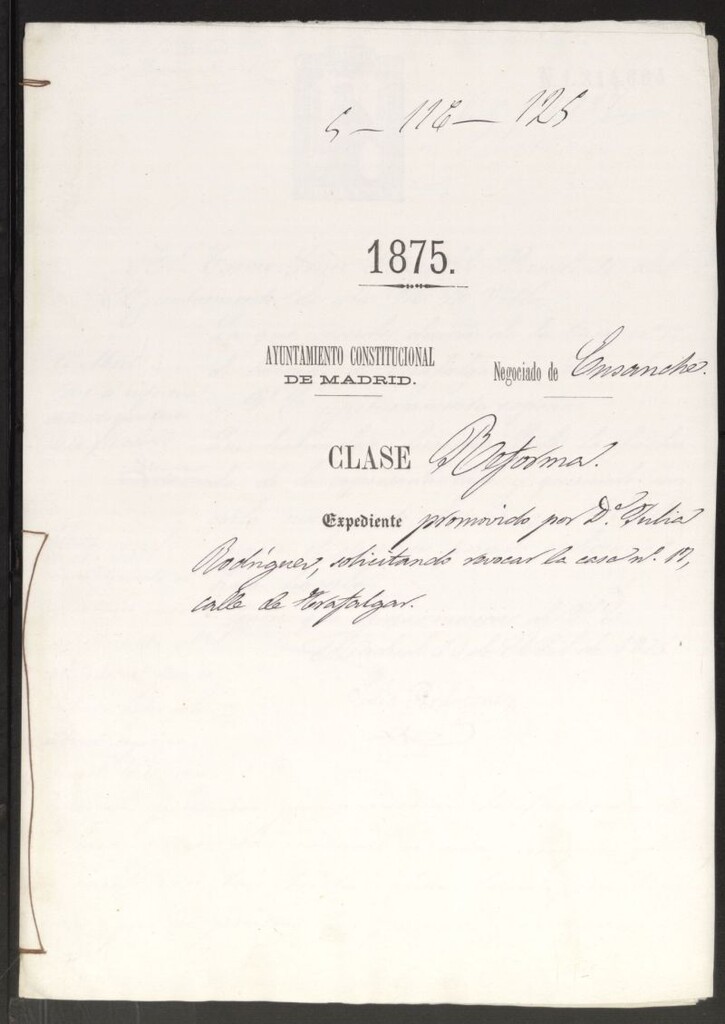 5 - 116 - 125
1875.
AYUNTAMIENTO CONSTITUCIONAL
DE MADRID.
Negociado de Ensanche.
CLASE Reforma.
Expediente promovido por D.ª Julia
Rodríguez, solicitando revocar la casa nº. 17,
calle de Trafalgar.